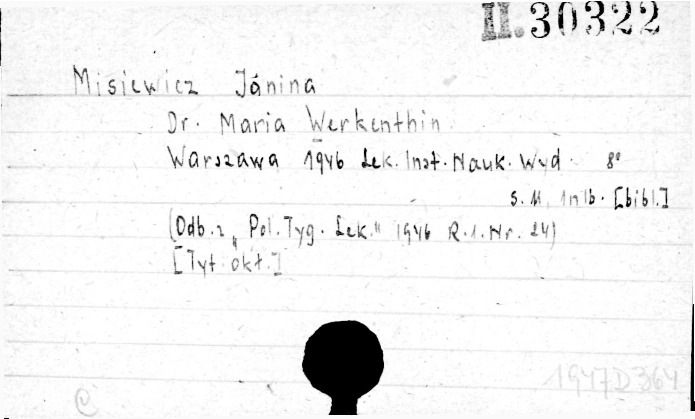 II.30322
Misiewicz Jánina
Dr. Maria Werkenthin.
Warszawa 1946 Lek. Inst. Nauk. Wyd. 8°
s. 11, 1nlb. [bibl.]
(Odb. z „Pol. Tyg. Lek." 1946 R.1. Nr. 24)
[Tyt. okł.]
1947D364
C